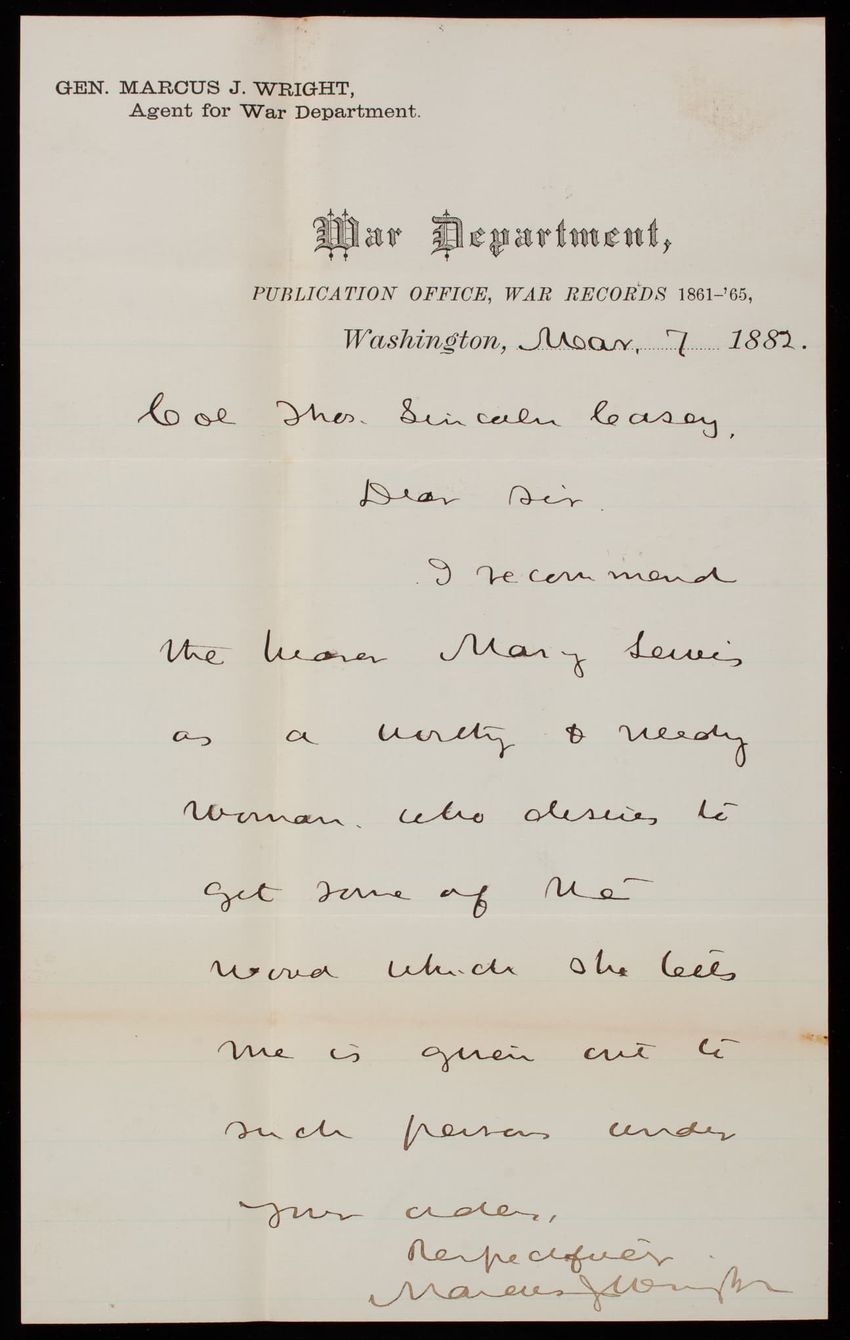 GEN. MARCUS J. WRIGHT,
Agent for War Department.
War Department,
PUBLICATION OFFICE, WAR RECORDS 1861-'65,
Washington, Mar, 7 1882.
Col Thos. Lincoln Casey,
Dear Sir.
I recommend
the bearer Mary Lewis
as a worthy & needy
woman. who desires to
get some of the
wood which she tells
me is given out to
such persons under
your orders,
Respectfully
Marcus J Wright